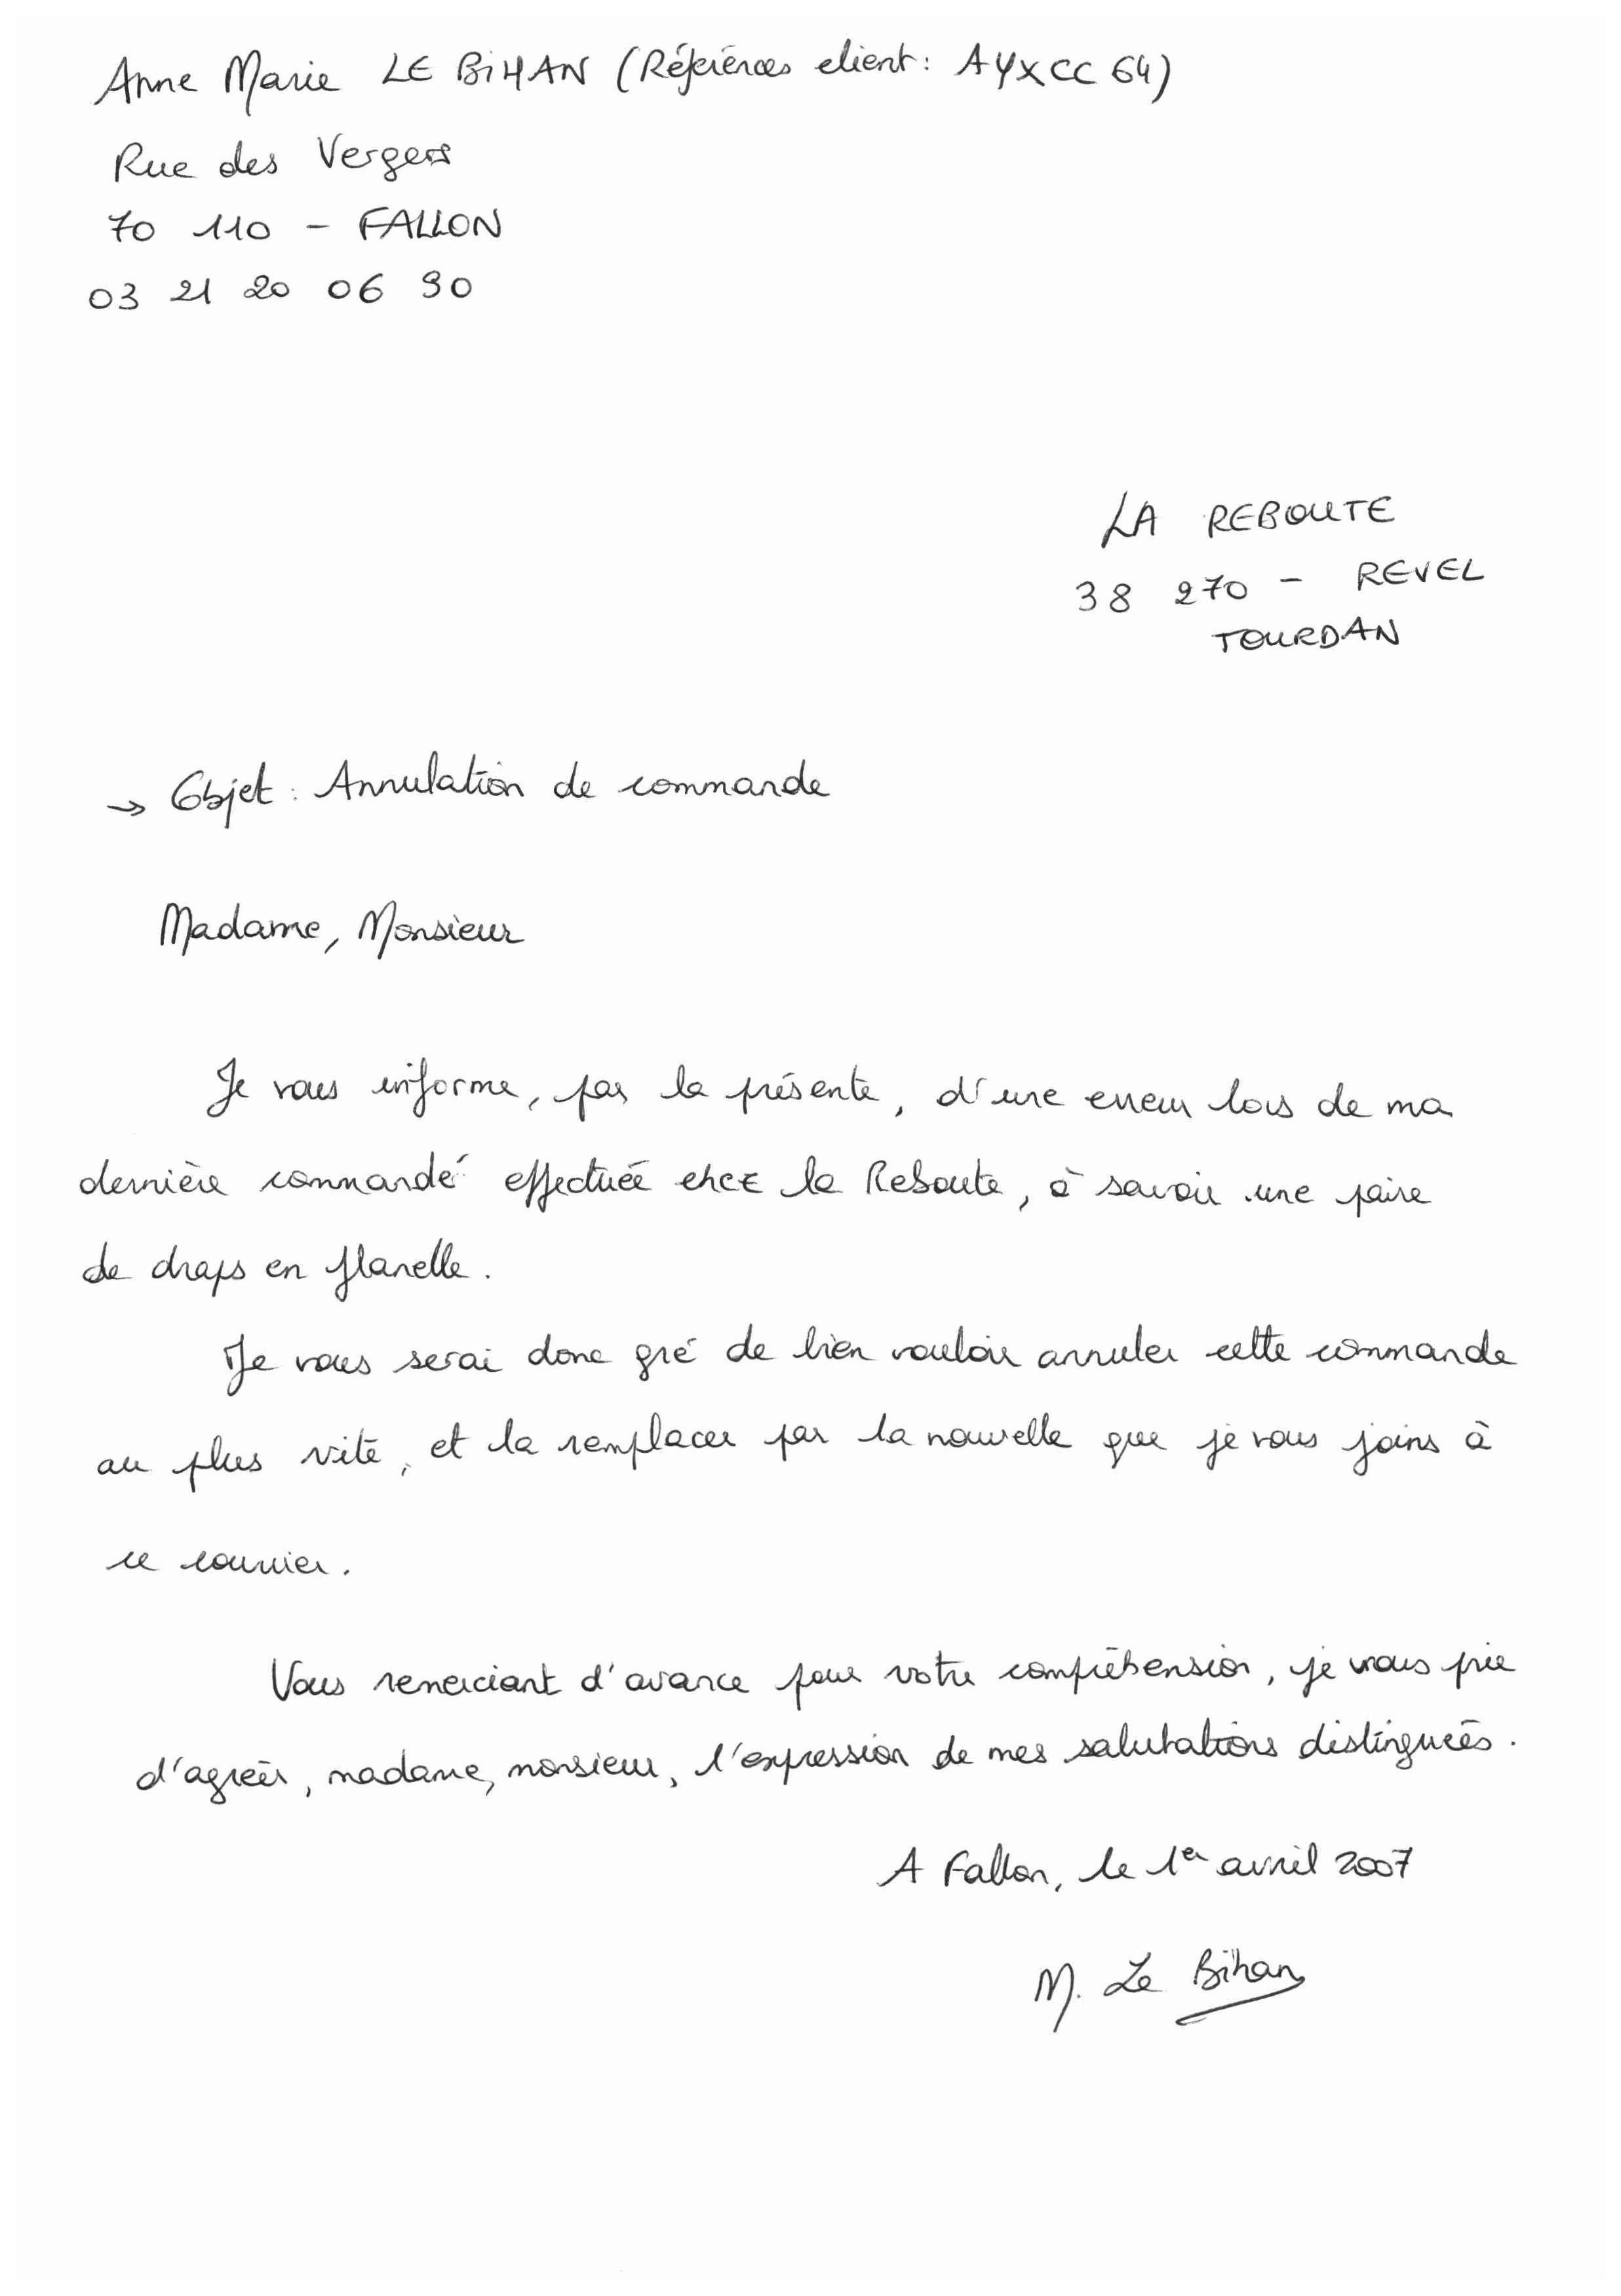 Anne Marie LE BIHAN (Références client : AYXCC 64)
Rue des Vergers
70 110 - FALLON
03 21 20 06 90
LA REBOUTE
38 270 - REVEL
TOURDAN
→ Objet : Annulation de commande
Madame, Monsieur
Je vous informe, par la présente, d'une erreur lors de ma
dernière commandé effectuée chez la Reboute, à savoir une paire
de draps en flanelle.
Je vous serai donc gré de bien vouloir annuler cette commande
au plus vite, et la remplacer par la nouvelle que je vous joins à
ce courrier.
Vous remerciant d'avance pour votre compréhension, je vous prie
d'agréer, madame, monsieur, l'expression de mes salutations distinguées.
A Fallon, le 1er avril 2007
M. Le Bihan